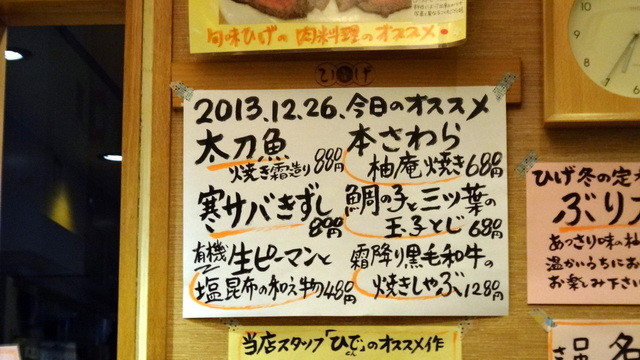 旬味ひげの 肉料理のオススメ
ひげ
2013.12.26.今日のオススメ
太刀魚
焼き霜造り 880円
本さわら
柚庵焼き 680円
寒サバきずし
880円
鯛の子と三ツ葉の
玉子とじ 680円
有機生ピーマンと
塩昆布の和え物 480円
霜降り黒毛和牛の
焼きしゃぶ 1280円
ひげ冬の定
ぶり
あっさり味の柚
温かいうちにお
お楽しみ下さい
当店スタッフ「ひでくん」のオススメ作